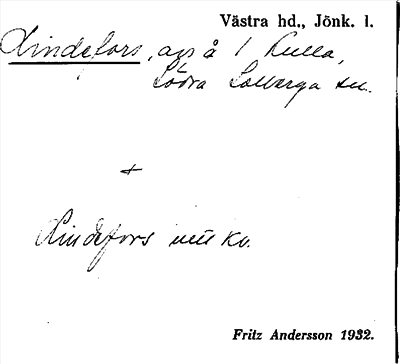 Västra hd., Jönk. l.
Lindefors, ägs å 1 Kulla,
Södra Solberga sn.
+
Lindefors
Fritz Andersson 1932.